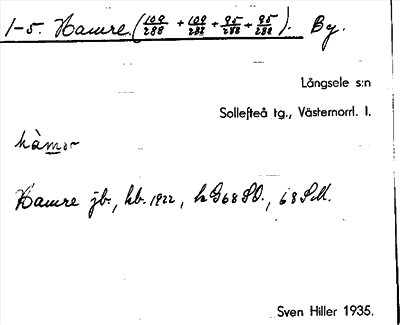 1-5. Hamre. (109/288 + 109/288 + 95/288 + 95/288). By.
Långsele s:n
Sollefteå tg., Västernorrl. l.
hàmər
Hamre jb., kb. 1922, k G68SO., 68 SM.
Sven Hiller 1935.